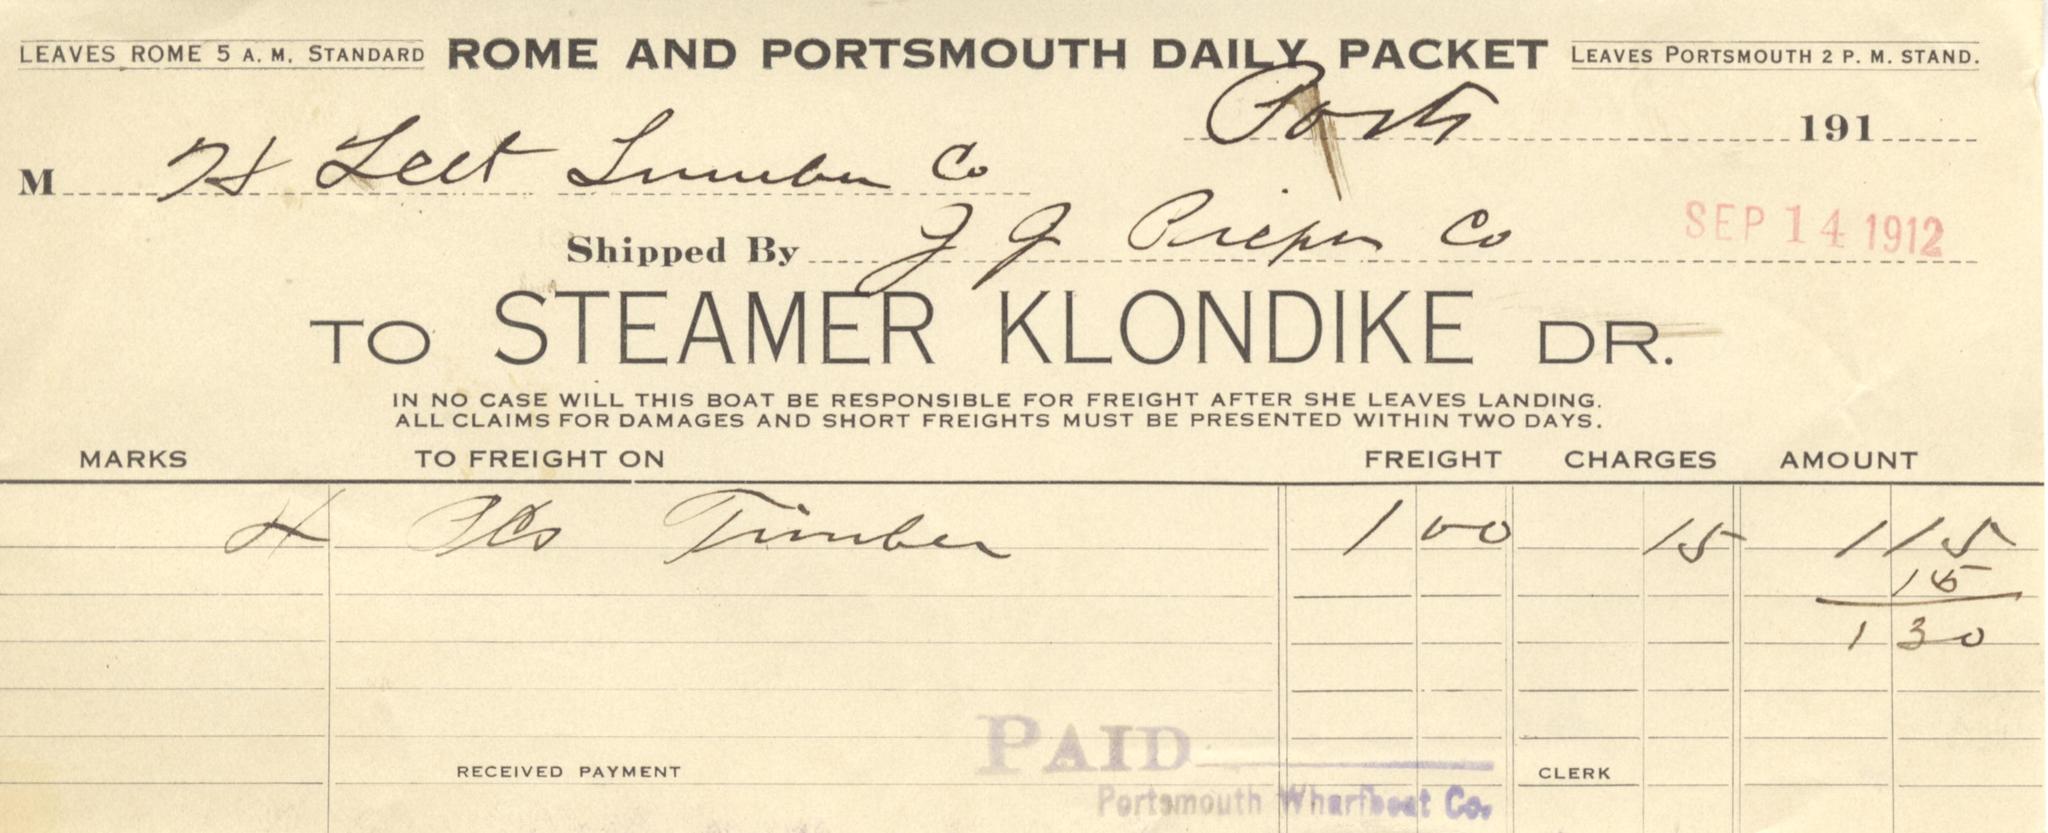 LEAVES ROME 5 A. M. STANDARD ROME AND PORTSMOUTH DAILY PACKET LEAVES PORTSMOUTH 2 P. M. STAND.
Ports 191
M H Leet Lumber Co
Shipped By J J Pieper Co SEP 14 1912
TO STEAMER KLONDIKE DR.
IN NO CASE WILL THIS BOAT BE RESPONSIBLE FOR FREIGHT AFTER SHE LEAVES LANDING.
ALL CLAIMS FOR DAMAGES AND SHORT FREIGHTS MUST BE PRESENTED WITHIN TWO DAYS.
MARKS TO FREIGHT ON FREIGHT CHARGES AMOUNT
4 Pcs Timber 1 00 15 1 15
15
1 30
PAID
RECEIVED PAYMENT CLERK
Portsmouth Wharfboat Co.